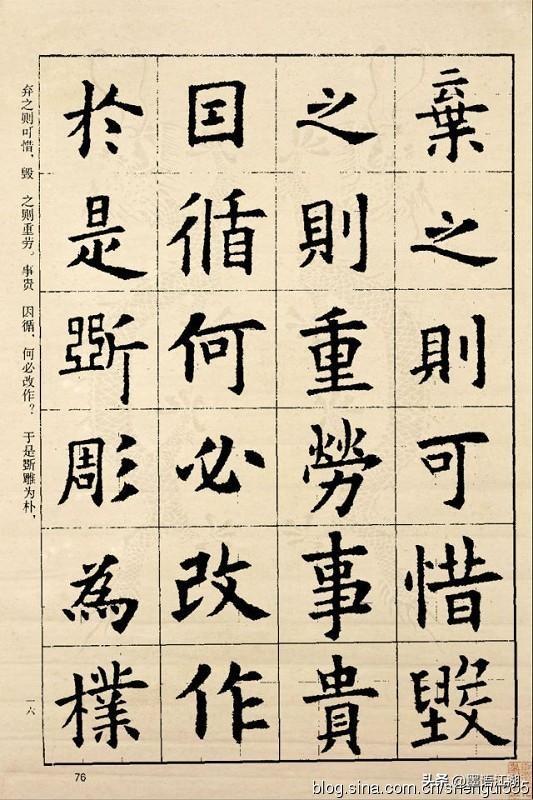 棄之則可惜毀
之則重勞事貴
因循何必改作
於是斵彫為樸
弃之则可惜,毁 之则重劳。事贵 因循,何必改作? 于是斵雕为朴,
一六
76
头条 @墨语江湖